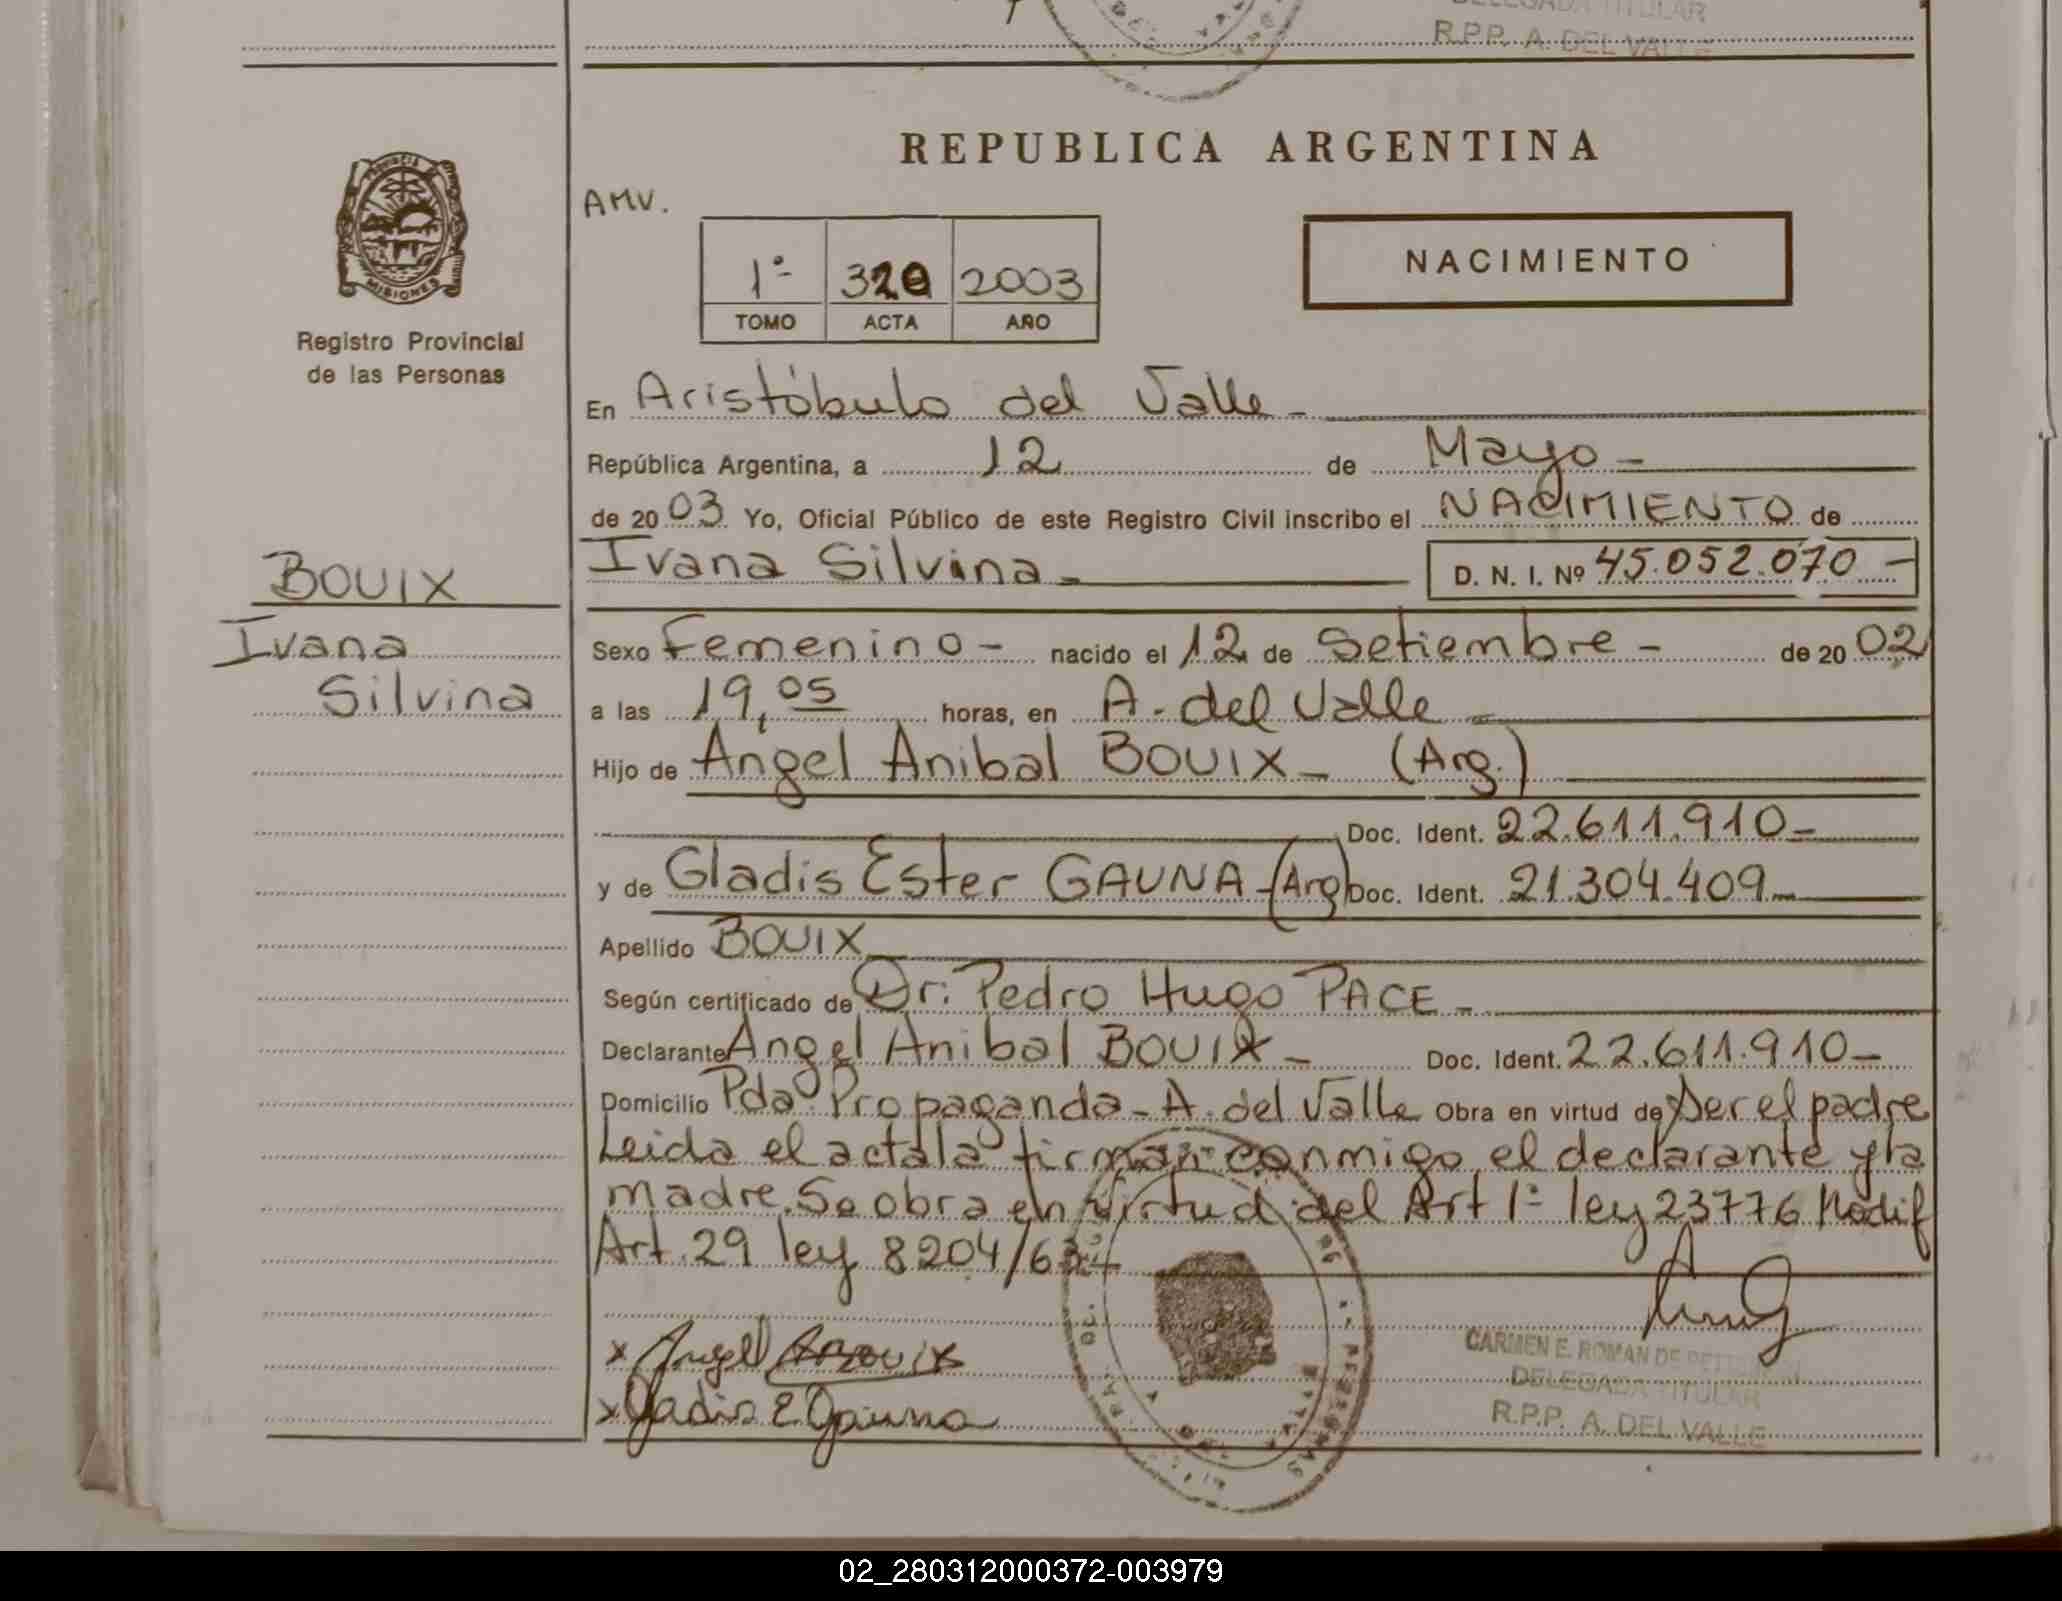 DELEGADA TITULAR
R.P.P. A. DEL VALLE
REPUBLICA ARGENTINA
AMV.
NACIMIENTO
1º 320 2003
TOMO ACTA AÑO
MISIONES
Registro Provincial
de las Personas
En Aristóbulo del Valle -
República Argentina, a 12 de Mayo -
de 2003 Yo, Oficial Público de este Registro Civil inscribo el NACIMIENTO de
Ivana Silvina - D. N. I. Nº 45.052.070 -
BOUIX
Ivana
Silvina
Sexo Femenino - nacido el 12 de Setiembre - de 2002
a las 19,05 horas, en A. del Valle -
Hijo de Angel Anibal BOUIX - (Arg.)
Doc. Ident. 22.611.910 -
y de Gladis Ester GAUNA - (Arg) Doc. Ident. 21.304.409 -
Apellido BOUIX
Según certificado de Dr. Pedro Hugo PACE -
Declarante Angel Anibal BOUIX - Doc. Ident. 22.611.910 -
Domicilio Pda Propaganda - A. del Valle Obra en virtud de Ser el padre
Leida el acta la firman conmigo el declarante y la
madre. Se obra en virtud del Art 1º ley 23776 Modif
Art. 29 ley 8204/63 -
x Angel A Bouix
x Gladis E Gauna
CARMEN E. ROMAN DE
DELEGADA TITULAR
R.P.P. A. DEL VALLE
02_280312000372-003979